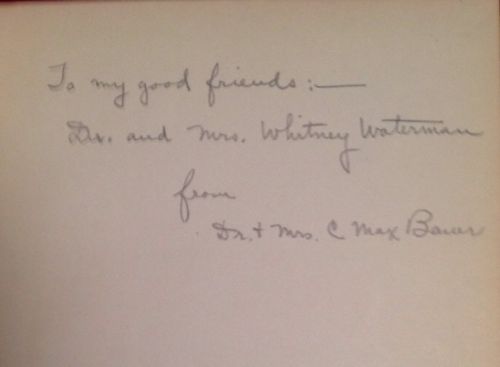 To my good friends:—
Dr. and Mrs. Whitney Waterman
from
Dr. + Mrs. C Max Bauer